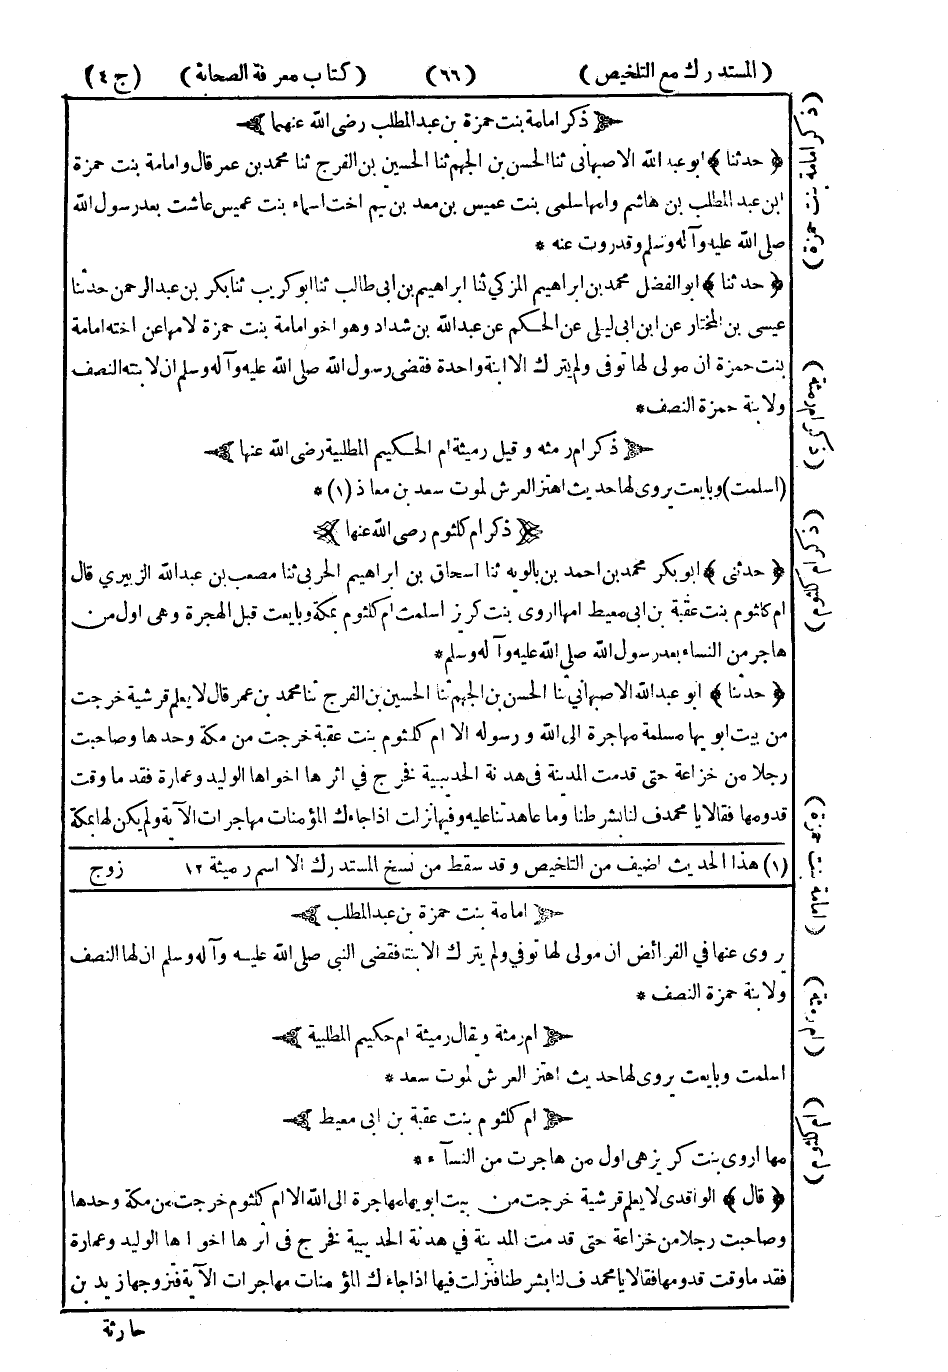 (المستدرك مع التلخيص) (٦٦) (كتاب معرفة الصحابة) (ج ٤)
ذكر امامة بنت حمزة بن عبدالمطلب رضى الله عنهما
﴿ حدثنا ﴾ ابو عبد الله الاصبهانى ثنا الحسن بن الجهم ثنا الحسين بن الفرج ثنا محمد بن عمر قال وامامة بنت حمزة
ابن عبد المطلب بن هاشم وامها سلمى بنت عميس بن معد بن تيم اخت اسماء بنت عميس عاشت بعد رسول الله
صلى الله عليه وآله وسلم وقدروت عنه *
﴿ حدثنا ﴾ ابوالفضل محمد بن ابراهيم المزكي ثنا ابراهيم بن ابى طالب ثنا ابوكريب ثنا بكر بن عبدالرحمن حدثنا
عيسى بن المختار عن ابن ابى ليلى عن الحكم عن عبدالله بن شداد وهو اخو امامة بنت حمزة لامها عن اخته امامة
بنت حمزة ان مولى لها توفى ولم يترك الا ابنة واحدة فقضى رسول الله صلى الله عليه وآله وسلم ان لابنته النصف
ولابنة حمزة النصف *
ذكر ام رمثه وقيل رميثة ام الحكيم المطلبية رضى الله عنها
(اسلمت) وبايعت يروى لها حديث اهتز العرش لموت سعد بن معاذ (١) *
ذكر ام كلثوم رضى الله عنها
﴿ حدثنى ﴾ ابوبكر محمد بن احمد بن بالويه ثنا اسحاق بن ابراهيم الحربى ثنا مصعب بن عبدالله الزبيري قال
ام كلثوم بنت عقبة بن ابى معيط امها اروى بنت كريز اسلمت ام كلثوم بمكة وبايعت قبل الهجرة وهى اول من
هاجر من النساء بعد رسول الله صلى الله عليه وآله وسلم *
﴿ حدثنا ﴾ ابو عبدالله الاصبهاني ثنا الحسن بن الجهم ثنا الحسين بن الفرج ثنا محمد بن عمر قال لا يعلم قرشية خرجت
من بيت ابويها مسلمة مهاجرة الى الله ورسوله الا ام كلثوم بنت عقبة خرجت من مكة وحدها وصاحبت
رجلا من خزاعة حتى قدمت المدينة فى هدنة الحديبية فخرج فى اثرها اخواها الوليد وعمارة فقدما وقت
قدومها فقالا يا محمد ف لنا بشرطنا وما عاهدتنا عليه وفيها نزلت اذا جاءك المؤمنات مهاجرات الآية ولم يكن لها بمكة
(١) هذا الحديث اضيف من التلخيص وقد سقط من نسخ المستدرك الا اسم رميثة ١٢ زوج
امامة بنت حمزة بن عبدالمطلب
روى عنها في الفرائض ان مولى لها توفي ولم يترك الا بنت فقضى النبى صلى الله عليه وآله وسلم ان لها النصف
ولابنة حمزة النصف *
ام رمثة ويقال رميثة ام حكيم المطلبية
اسلمت وبايعت يروى لها حديث اهتز العرش لموت سعد *
ام كلثوم بنت عقبة بن ابى معيط
مها اروى بنت كريز هى اول من هاجرت من النسآء *
﴿ قال ﴾ الواقدى لا يعلم قرشية خرجت من بيت ابويها مهاجرة الى الله الا ام كلثوم خرجت من مكة وحدها
وصاحبت رجلا من خزاعة حتى قدمت المدينة في هدنة الحديبية فخرج فى اثرها اخواها الوليد وعمارة
فقدما وقت قدومها فقالا يا محمد ف لنا بشرطنا فنزلت فيها اذا جاءك المؤمنات مهاجرات الآية فتزوجها زيد بن
حارثة
(ذكر امامة بنت حمزة)
(ذكر ام رمثة)
(ذكر ام كلثوم)
(امامة بنت حمزة)
(ام رمثة)
(ام كلثوم)